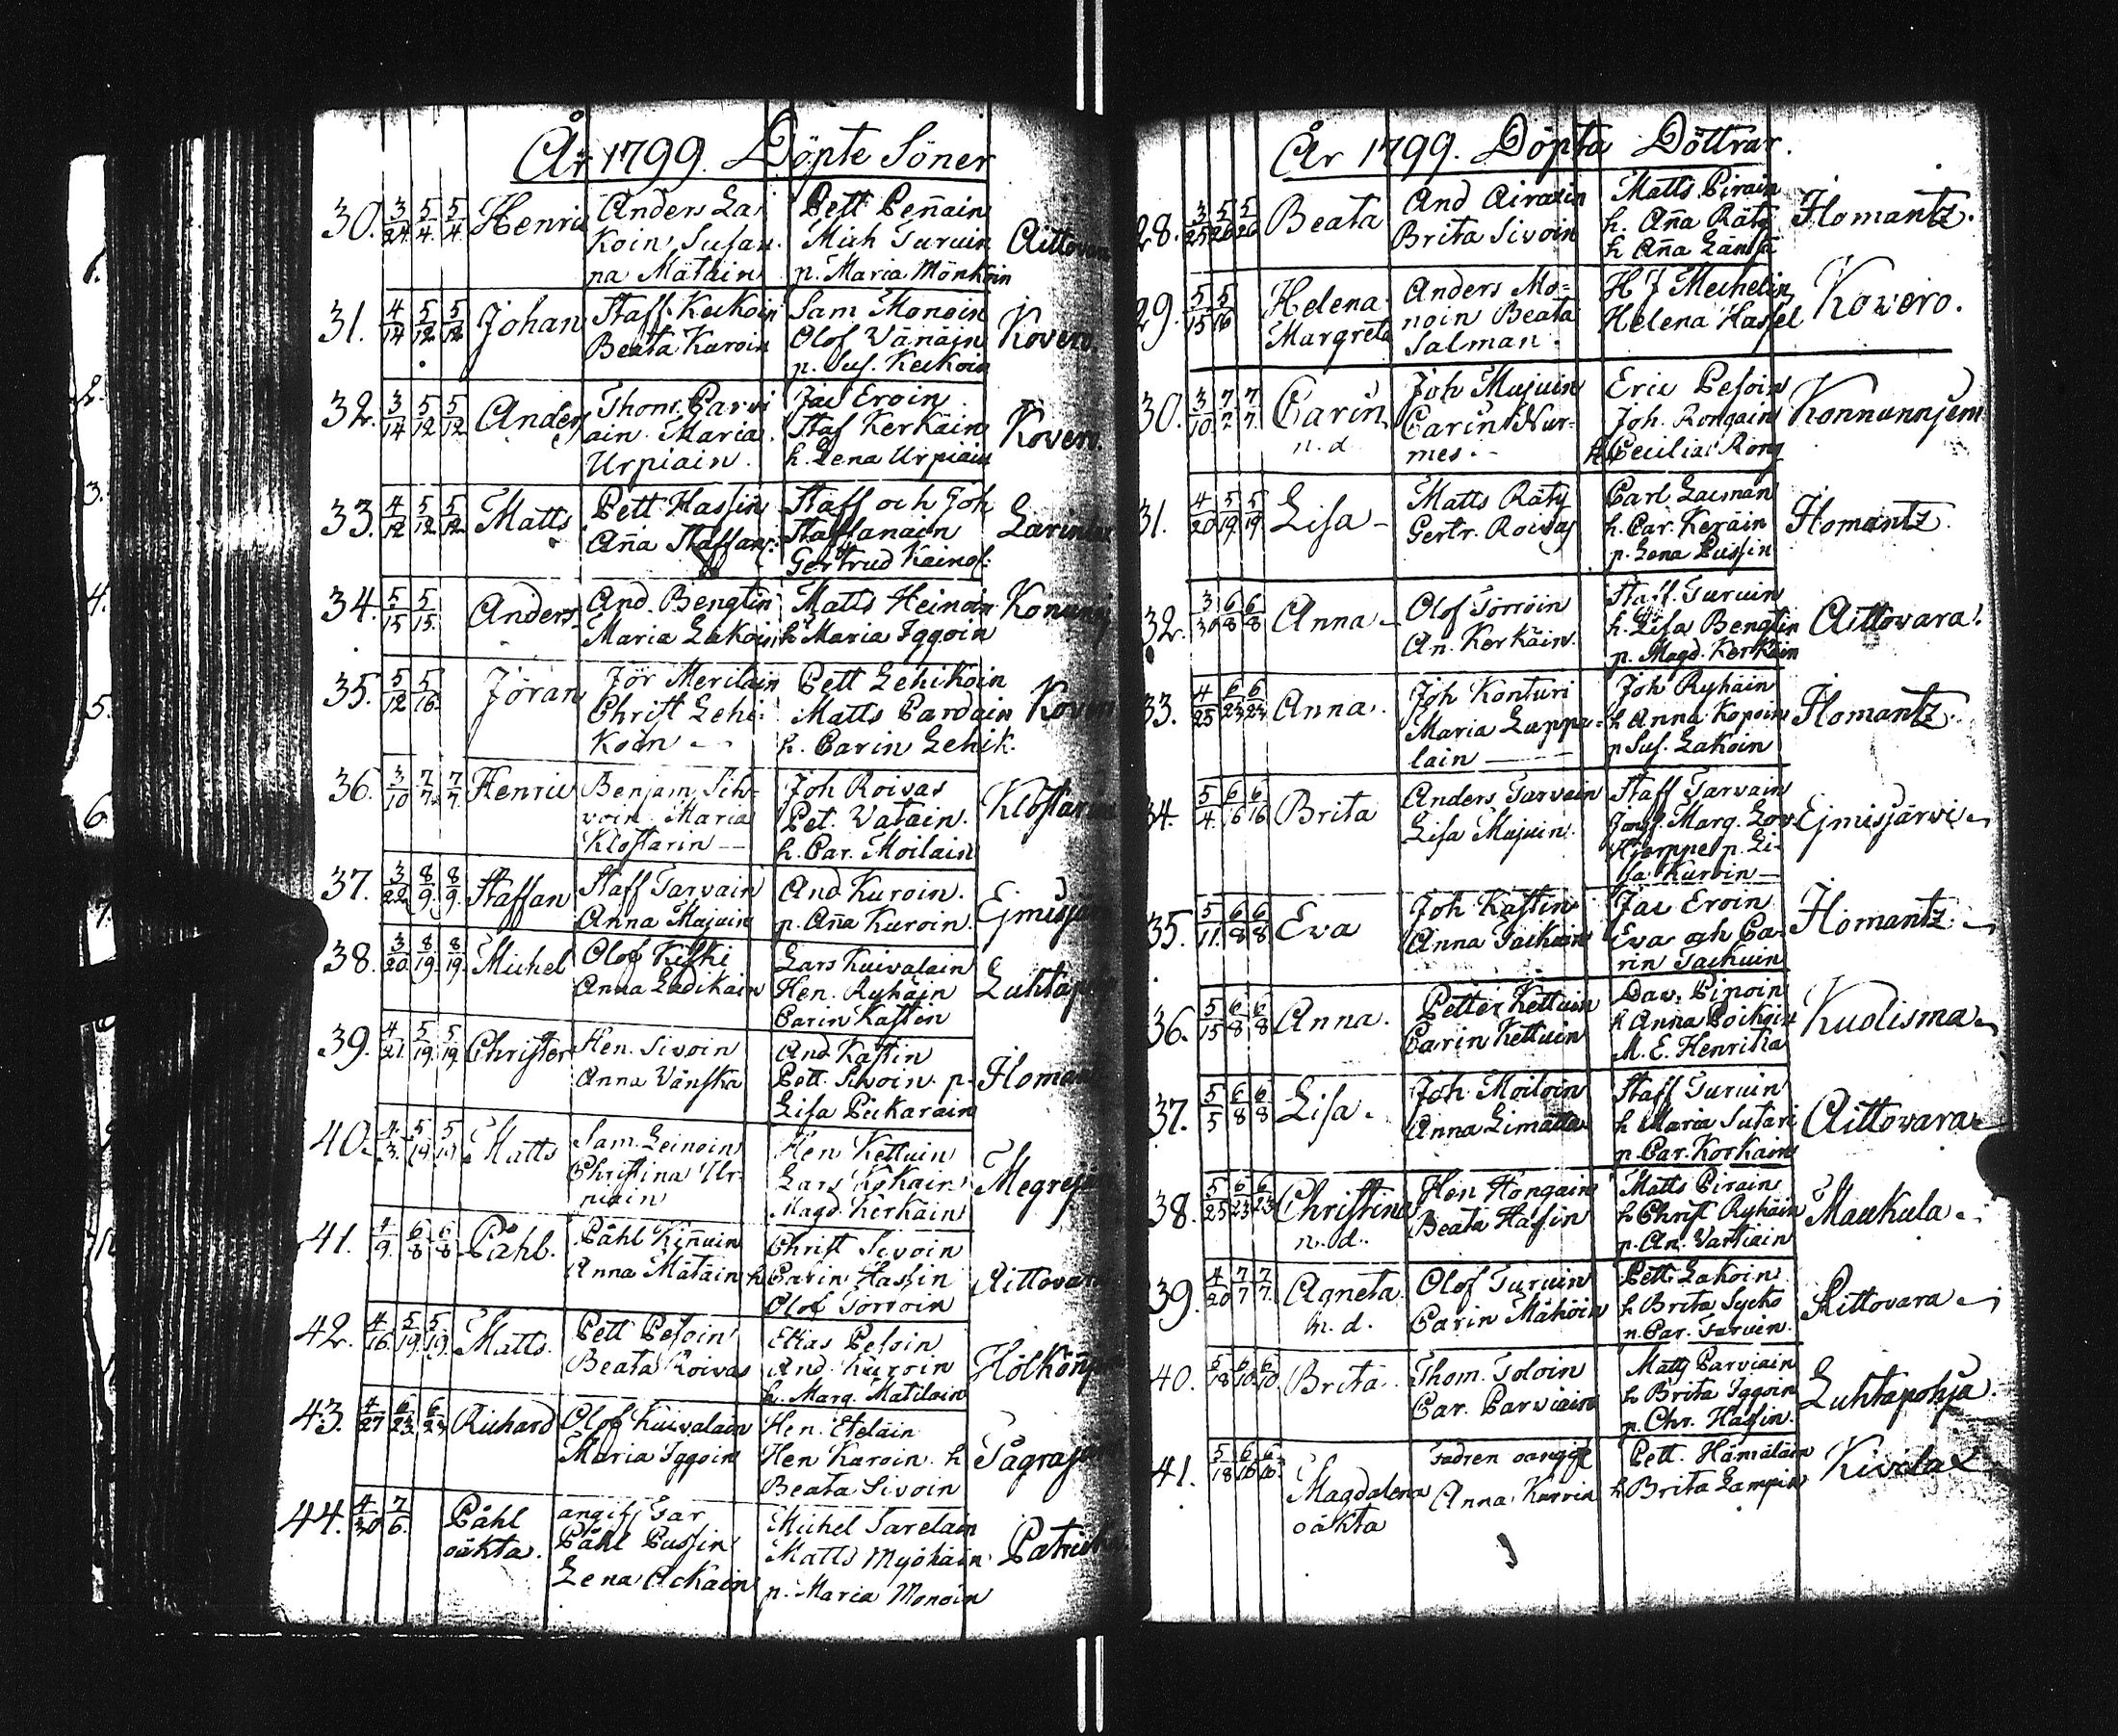 År 1799. Döpte Söner
30. 3/24 5/4 5/4 Henric Anders La- Pett Peñain
Koin Susan- Mich Turuin Aittovara
na Mätäin p. Maria Mönköin
31. 4/14 5/12 5/12 Johan Staff. Keckoin Sam Monoin
Beata Karoin Olof Wänäin Kovero.
p. Sus. Keckoin
32. 3/14 5/12 5/12 Anders Thom. Parvi Jac Eroin
ain Maria Staf Kerkäin Kovero.
Urpiain. h. Lena Urpiain
33. 4/12 5/12 5/12 Matts Pett Hassin Staff och Joh
Aña Staffan: Staffanain
Gertrud Kainol:
34. 5/15 5/15 Anders And. Bengtin Matts Heinoin
Maria Lakoin h Maria Iggoin
35. 5/12 5/16 Jöran Jör Merilain Pett Lehikoin
Christ Lehi- Matts Pardain
Koin h. Carin Lehik.
36. 3/10 7/7 7/7 Henric Benjam Sih- Joh Roivas
voin Maria Pet. Vatain.
Klostarin h. Car. Moilain
37. 3/22 8/9 8/9 Staffan Staff Tarvain And Kuroin.
Anna Majuin p. Aña Kuroin.
38. 3/20 8/19 8/19 Michel Olof Kiiski Lars Kuivalain
Anna Ladikain Hen. Ryhäin
Carin Kasten
39. 4/21 5/19 5/19 Christer Hen. Sivoin And Kastin
Anna Vänska Pett. Sivoin. p.
Lisa Pickarain
40. 4/3 5/19 5/19 Matts Sam. Leinoin Hen Kettuin
Christina Ur- Lars Kokain
piain Magd. Kerkäin
41. 4/9 6/8 6/8 Påhl. Påhl Kiñuin Christ Sivoin
Anna Mätäin h Carin Hassin
Olof Torroin
42. 4/16 5/19 5/19 Matts. Pett Pesoin Elias Pesoin
Beata Roivas And. Kuroin
h. Marg. Matilain
43. 4/27 6/23 6/23 Richard Olof Kuivalain Hen. Eteläin
Maria Iggoin Hen Karoin. h
Beata Sivoin
44. 4/30 7/6 Påhl angif. Far Michel Tarelain
oäkta. Påhl Pussin Matts Myöhäin
Lena Ackain p. Maria Monoin
År 1799. Döpta Döttrar.
28. 3/25 5/26 5/26 Beata And Airaxin Matts Pirain
Brita Sivoin h. Aña Räty Ilomantz.
h Aña Länsta
29. 5/15 5/16 Helena Anders Mo- H J Mechelin
Margreta noin Beata Helena Hassel Kovero.
Salman.
30. 3/10 7/7 7/7 Carin Joh Mujuin Eric Pesoin
n. d. Carin Nur- Joh. Rongain
mes. h Cecilia Rong
31. 4/20 5/19 5/19 Lisa Matts Räty Carl Lacman
Gertr. Roivas h. Car. Keräin Ilomantz.
p. Lena Pussin
32. 3/30 6/8 6/8 Anna Olof Törröin Staff. Turuin
An. Kerkäin. h. Lisa Bengtin Aittovara.
p. Magd. Kerkäin
33. 4/25 6/23 6/23 Anna. Joh Konturi Joh Ryhäin
Maria Lappa- h Anna Kopoin Ilomantz.
lain p Sus. Lakoin
34. 5/4 6/16 6/16 Brita Anders Tarvain Staff Tarvain
Lisa Mujuin. Jungf. Marg. Lov Ejmisjärvi
Hjerppe p. Li-
sa Kuroin
35. 5/11 6/8 6/8 Eva Joh Kastin Jac Eroin
Anna Tackuin Eva och Ca- Ilomantz
rin Tackuin
36. 5/15 6/8 6/8 Anna. Petter Kettuin Dav. Pipoin
Carin Kettuin h Anna Poikoin Kuolisma
M. E. Henricka
37. 5/5 6/8 6/8 Lisa. Joh. Moiloin Staff Turuin
Anna Limatta h Maria Sutari Aittovara
p. Car. Korkain
38. 5/25 6/23 6/23 Christina Hen Hongain Matts Pirain
n. d. Beata Hassin h Christ Ryhäin Maukula
p. An. Vartiain
39. 4/20 7/7 7/7 Agneta Olof Turuin Pett Lakoin
n. d. Carin Mähöin h Brita Sycko Aittovara
p. Car. Turuin.
40. 5/18 6/10 6/10 Brita Thom. Toloin Matts Parviain
Car. Parviain h Brita Iggoin Luhtapohja.
p. Chr. Hassin.
41. 5/18 6/16 6/16 Fadren oangift Pett. Hämäläin
Magdalena Anna Kurvin h Brita Lampin Kivila
oäkta